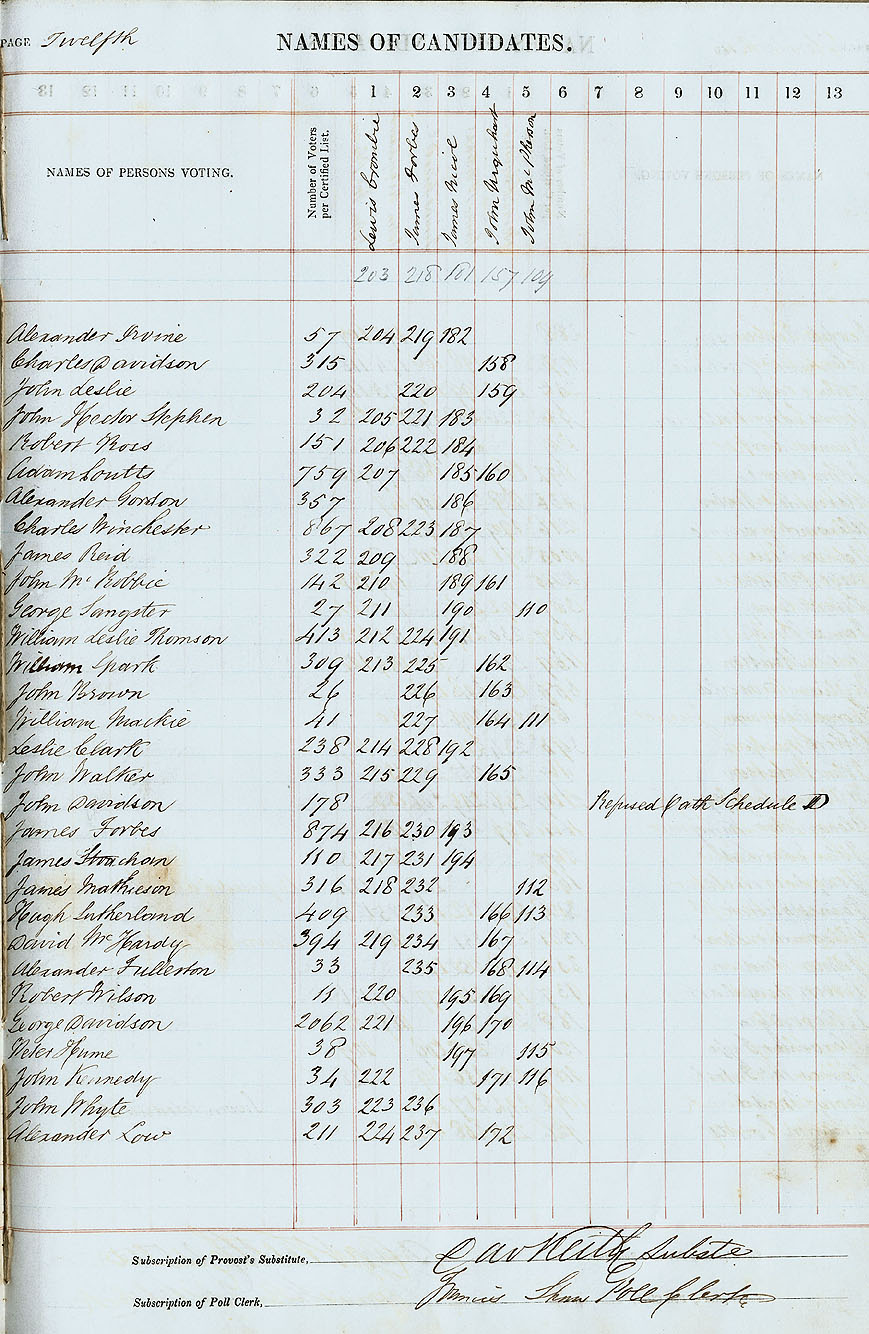 PAGE Twelfth
NAMES OF CANDIDATES.
1 2 3 4 5 6 7 8 9 10 11 12 13
NAMES OF PERSONS VOTING. Number of Voters per Certified List. Lewis Crombie James Forbes James Nicol John Urquhart John McPherson
203 218 181 157 109
Alexander Irvine 57 204 219 182
Charles Davidson 315 158
John Leslie 204 220 159
John Hector Stephen 32 205 221 183
Robert Ross 151 206 222 184
Adam Coutts 759 207 185 160
Alexander Gordon 357 186
Charles Winchester 867 208 223 187
James Reid 322 209 188
John McRobbie 142 210 189 161
George Sangster 27 211 190 110
William Leslie Thomson 413 212 224 191
William Spark 309 213 225 162
John Brown 26 226 163
William Mackie 41 227 164 111
Leslie Clark 238 214 228 192
John Walker 333 215 229 165
John Davidson 178 Refused Oath Schedule D
James Forbes 874 216 230 193
James 110 217 231 194
James Mathieson 316 218 232 112
Hugh Sutherland 409 233 166 113
David McHardy 394 219 234 167
Alexander Fullerton 33 235 168 114
Robert Wilson 11 220 195 169
George Davidson 2062 221 196 170
Peter Hume 38 197 115
John Kennedy 34 222 171 116
John Whyte 303 223 236
Alexander Low 211 224 237 172
Subscription of Provost's Substitute, Keith Subste
Subscription of Poll Clerk, Francis Shaw Poll Clerk